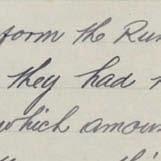 form the Run
they had n
which amoun